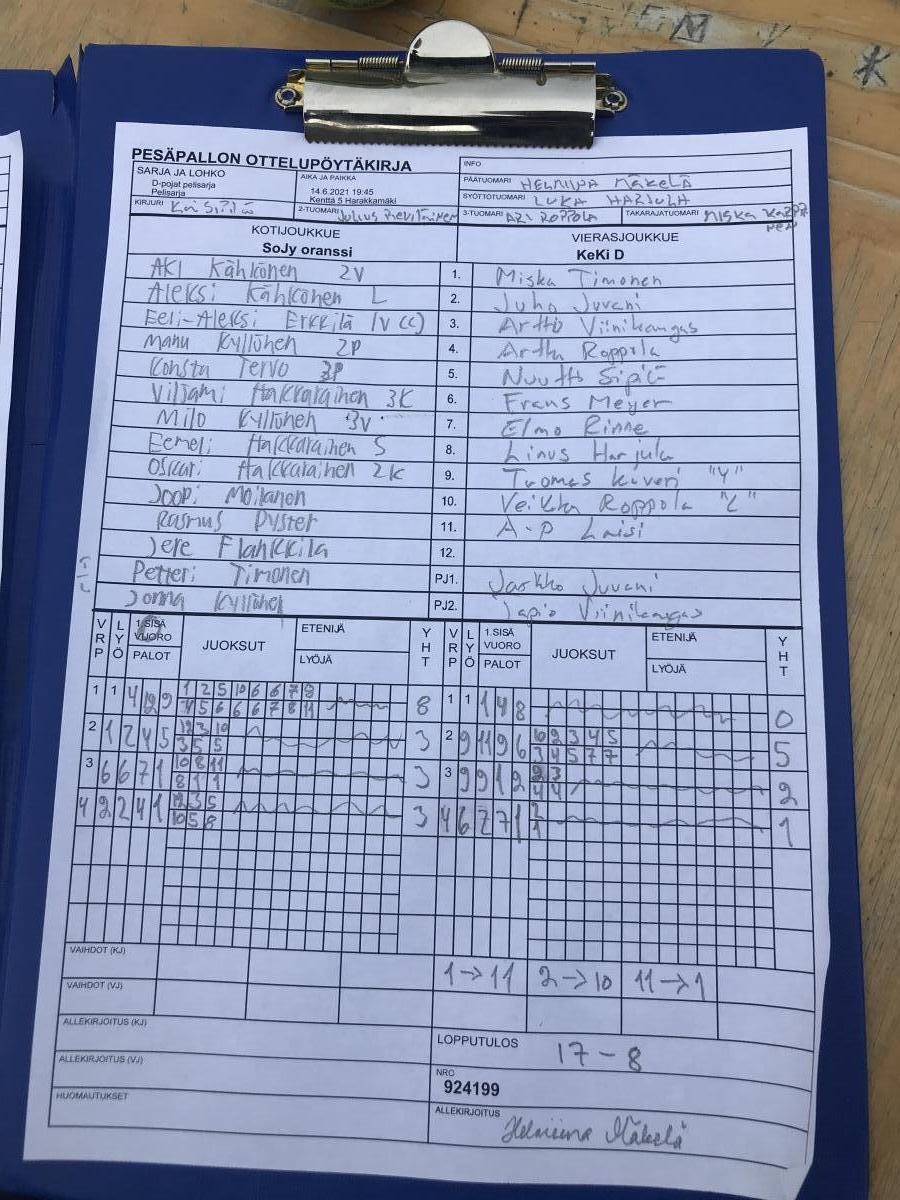 PESÄPALLON OTTELUPÖYTÄKIRJA
SARJA JA LOHKO
D-pojat pelisarja
Pelisarja
AIKA JA PAIKKA
14.6.2021 19:45
Kenttä 5 Harakkamäki
INFO
PÄÄTUOMARI HELMIINA MÄKELÄ
SYÖTTÖTUOMARI LUKA HARJULA
KIRJURI
2-TUOMARI Julius
3-TUOMARI ARI ROPPOLA
TAKARAJATUOMARI MISKA
KOTIJOUKKUE
SoJy oranssi
VIERASJOUKKUE
KeKi D
AKI Kähkönen 2V 1. Miska Timonen
Aleksi Kähkönen L 2. Juho Juvani
Eeli-Aleksi Erkkilä 1V (C) 3. Arttu Viinikangas
Manu Kyllönen 2P 4. Arttu Roppola
Konsta Tervo 3P 5. Nuutti Sipilä
Viljami Hakkarainen 3K 6. Frans Meyer
Milo Kyllönen 3V 7. Elmo Rinne
Eemeli Hakkarainen S 8. Linus Harjula
Oscari Hakkarainen 2K 9. Tuomas Kiveri "4"
Joopi Moilanen 10. Veikka Roppola "L"
Rasmus Pyster 11. A-P Laisi
Jere Flankkila 12.
Petteri Timonen PJ1. Jarkko Juvani
Jonna Kyllönen PJ2. Tapio Viinikangas
V R P
L Y Ö
1.SISÄ VUORO
PALOT
JUOKSUT
ETENIJÄ
LYÖJÄ
Y H T
V R P
L Y Ö
1.SISÄ VUORO
PALOT
JUOKSUT
ETENIJÄ
LYÖJÄ
Y H T
1 1 4 9 1 2 5 10 6 6 7 9 8 1 1 1 4 8 0
4 5 6 6 6 7 8 11
2 1 2 4 5 12 3 10 3 2 9 11 9 6 10 2 3 4 5 5
3 5 5 3 4 5 7 7
3 6 6 7 1 10 8 11 3 3 9 9 1 2 2 3 2
8 1 1 4 4
4 2 2 4 1 12 3 5 3 4 6 7 7 1 2 1
10 5 8 1
VAIHDOT (KJ)
1→11 2→10 11→1
VAIHDOT (VJ)
ALLEKIRJOITUS (KJ)
LOPPUTULOS 17-8
ALLEKIRJOITUS (VJ)
NRO
924199
HUOMAUTUKSET
ALLEKIRJOITUS
Helmiina Mäkelä